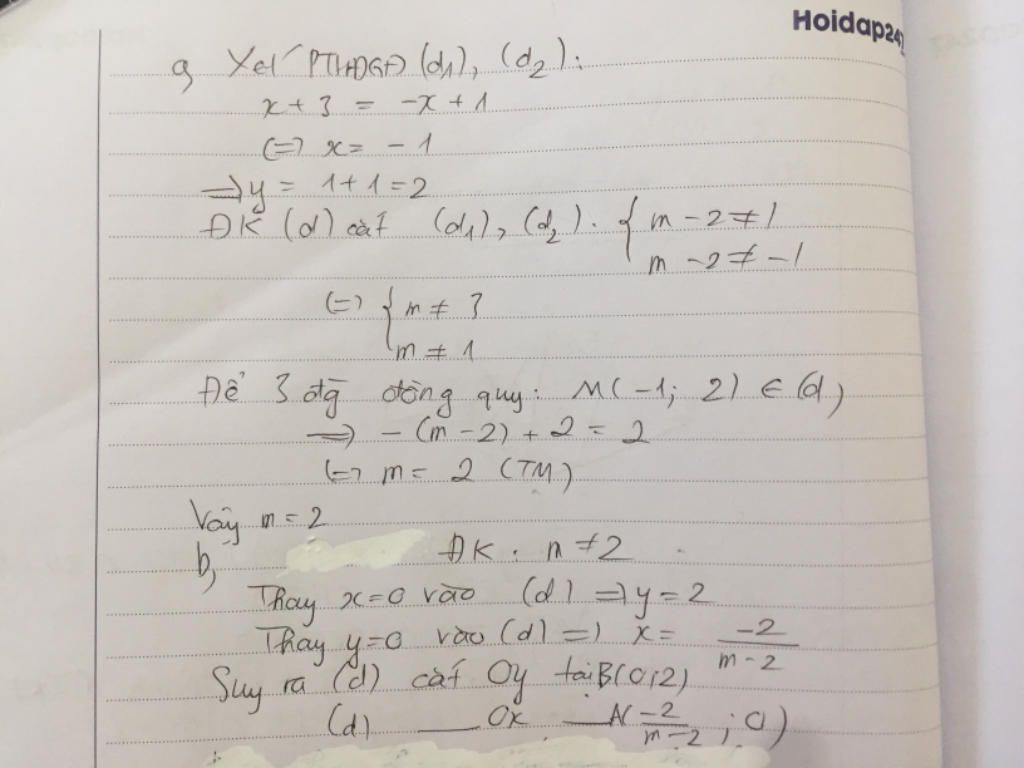 Hoidap247
a, Xét PTHĐGĐ (d1), (d2):
x + 3 = -x + 1
(=) x = - 1
=> y = 1 + 1 = 2
ĐK (d) cắt (d1), (d2). { m - 2 ≠ 1
m - 2 ≠ - 1
(=) { m ≠ 3
m ≠ 1
Để 3 đg đồng quy: M(-1; 2) ∈ (d)
=> - (m - 2) + 2 = 2
(=) m = 2 (TM)
Vậy m = 2
b, ĐK: m ≠ 2
Thay x=0 vào (d) => y = 2
Thay y=0 vào (d) => x = -2/m-2
Suy ra (d) cắt Oy tại B(0;2)
(d) ___ Ox ___ A(-2/m-2; 0)